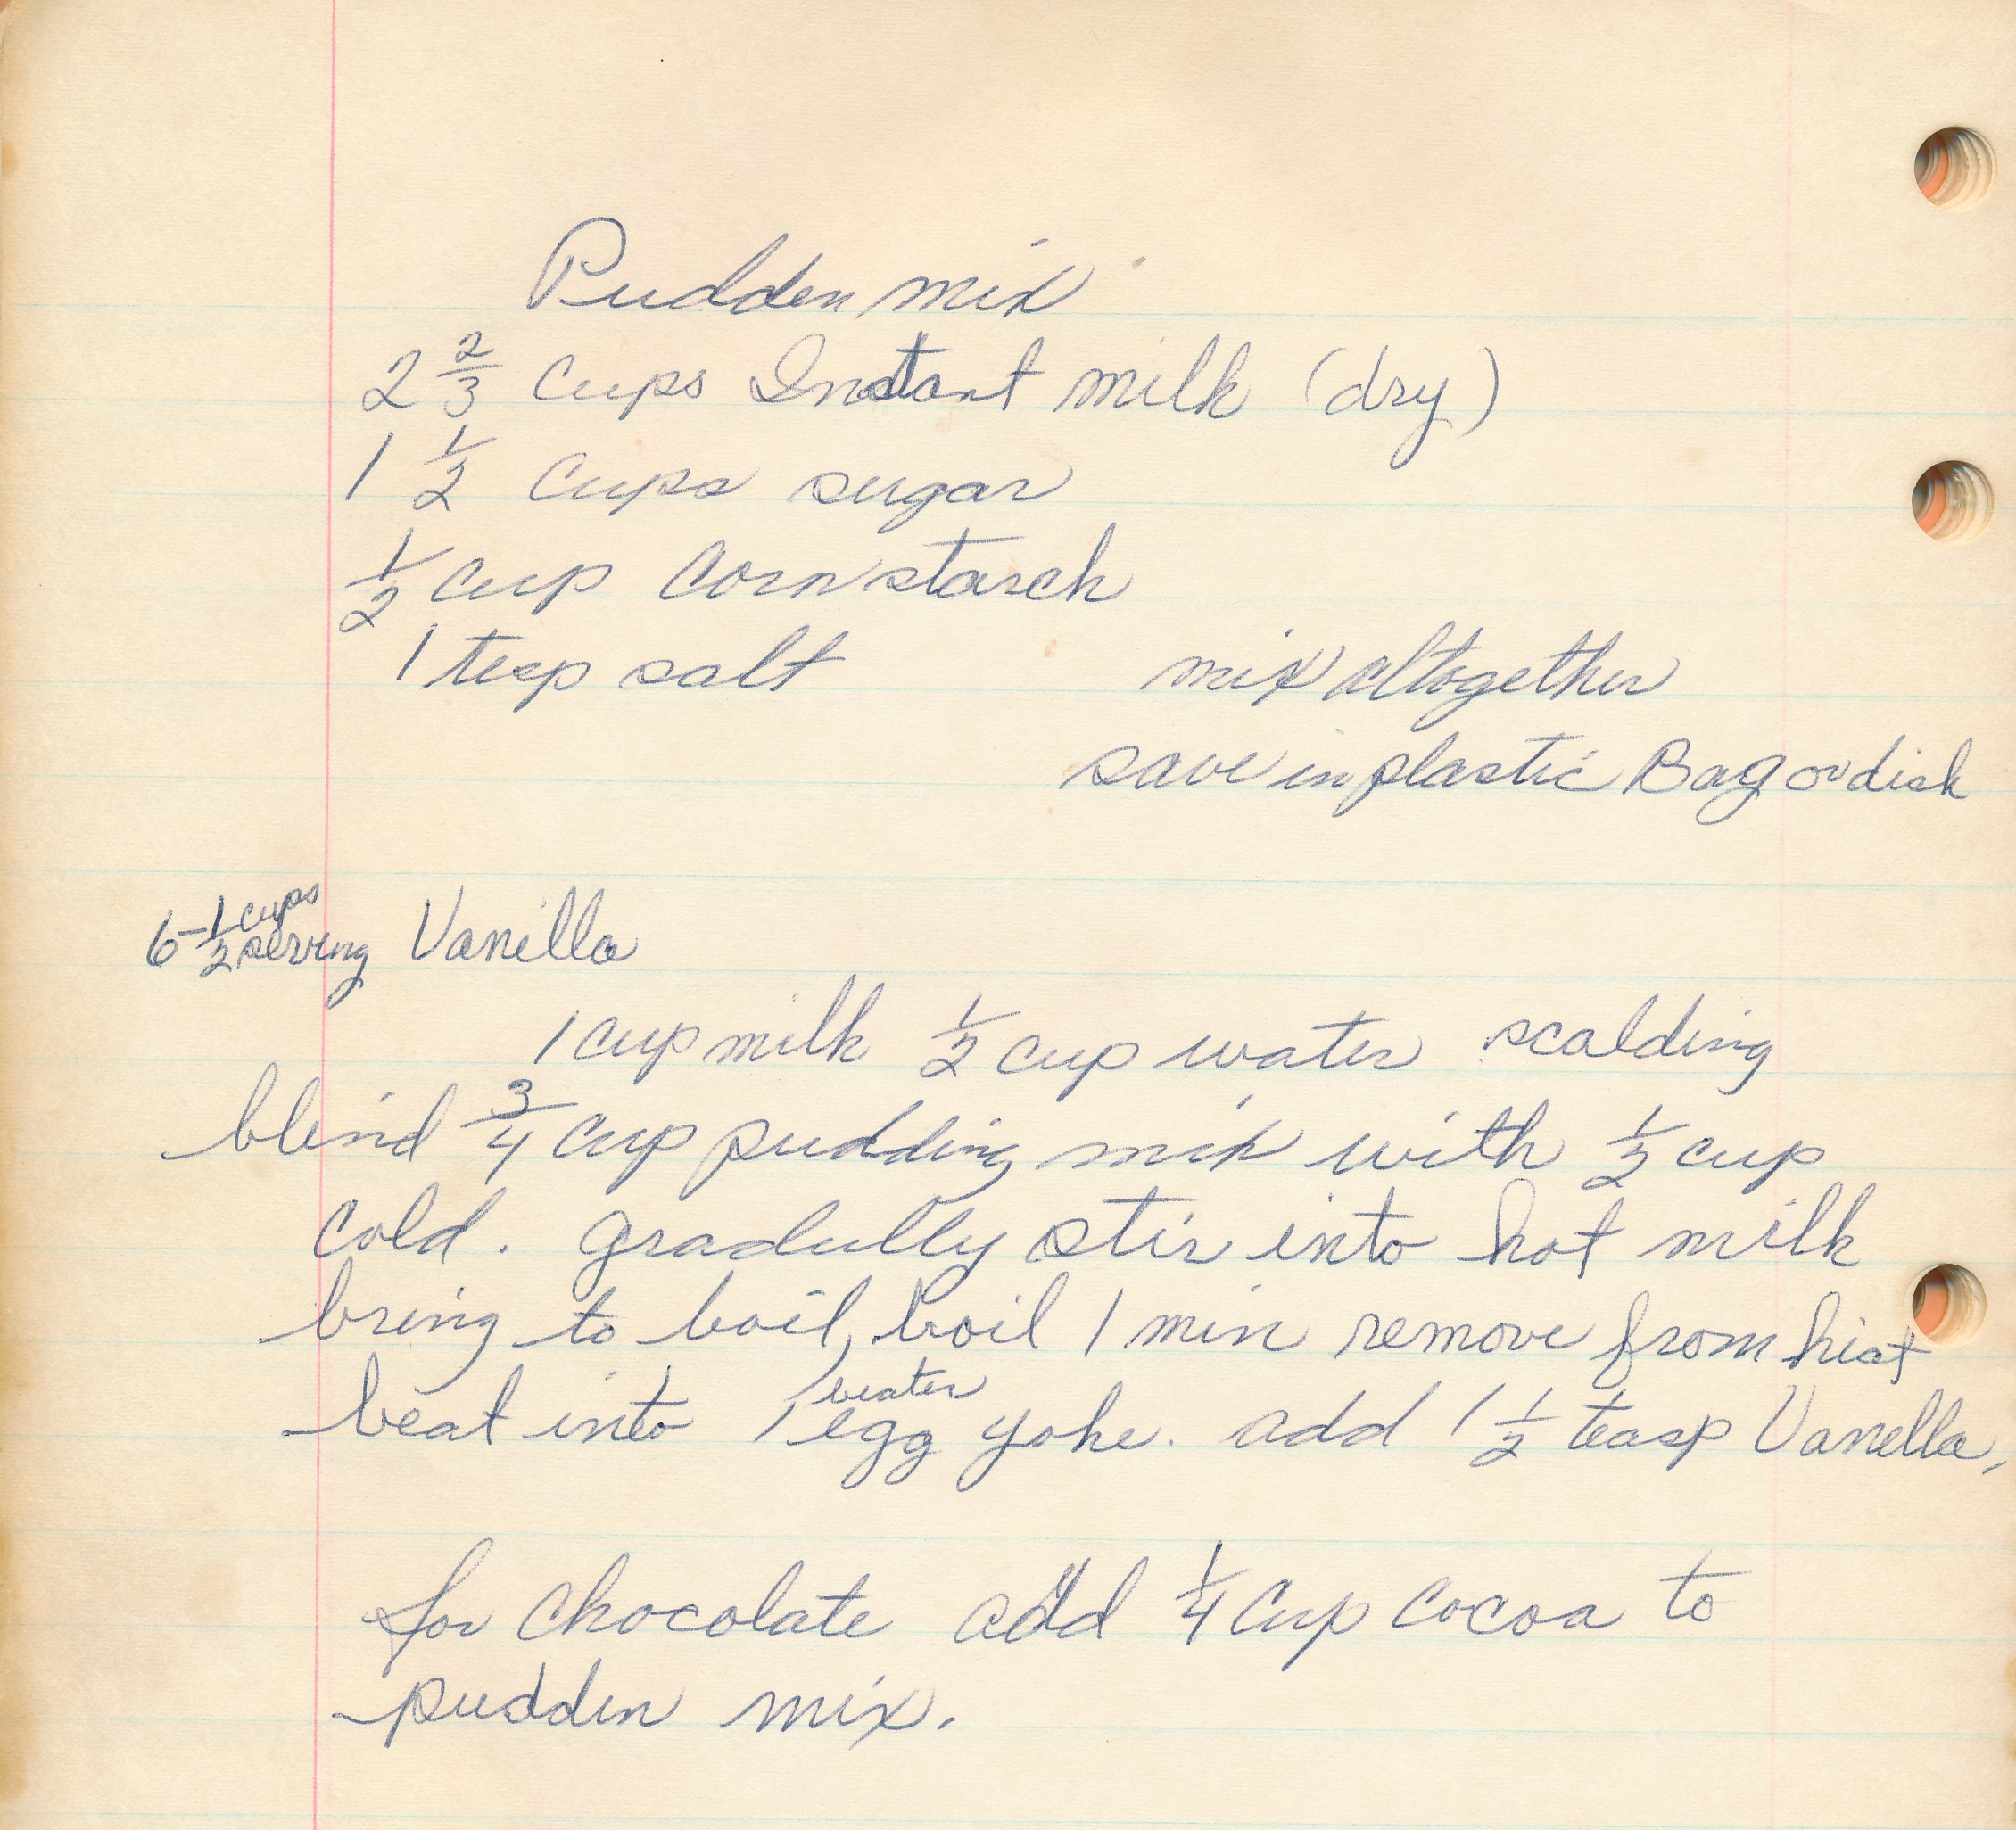 Pudden mix
2 2/3 cups Instant milk (dry)
1 1/2 cups sugar
1/2 cup Corn starch
1 tesp salt
mix altogether
save in plastic Bag or dish
6-1/2 cups
serving Vanilla
1 cup milk 1/2 cup water scalding
blend 3/4 cup pudding mix with 1/2 cup
cold. gradully stir into hot milk
bring to boil, boil 1 min remove from heat
beaten
beat into 1 egg yoke. add 1 1/2 teasp Vanella,
for chocolate add 1/4 cup cocoa to
pudden mix.